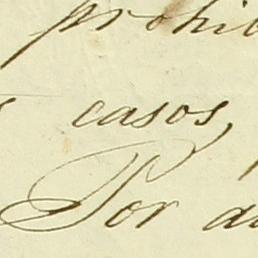 prohib
casos,
Por